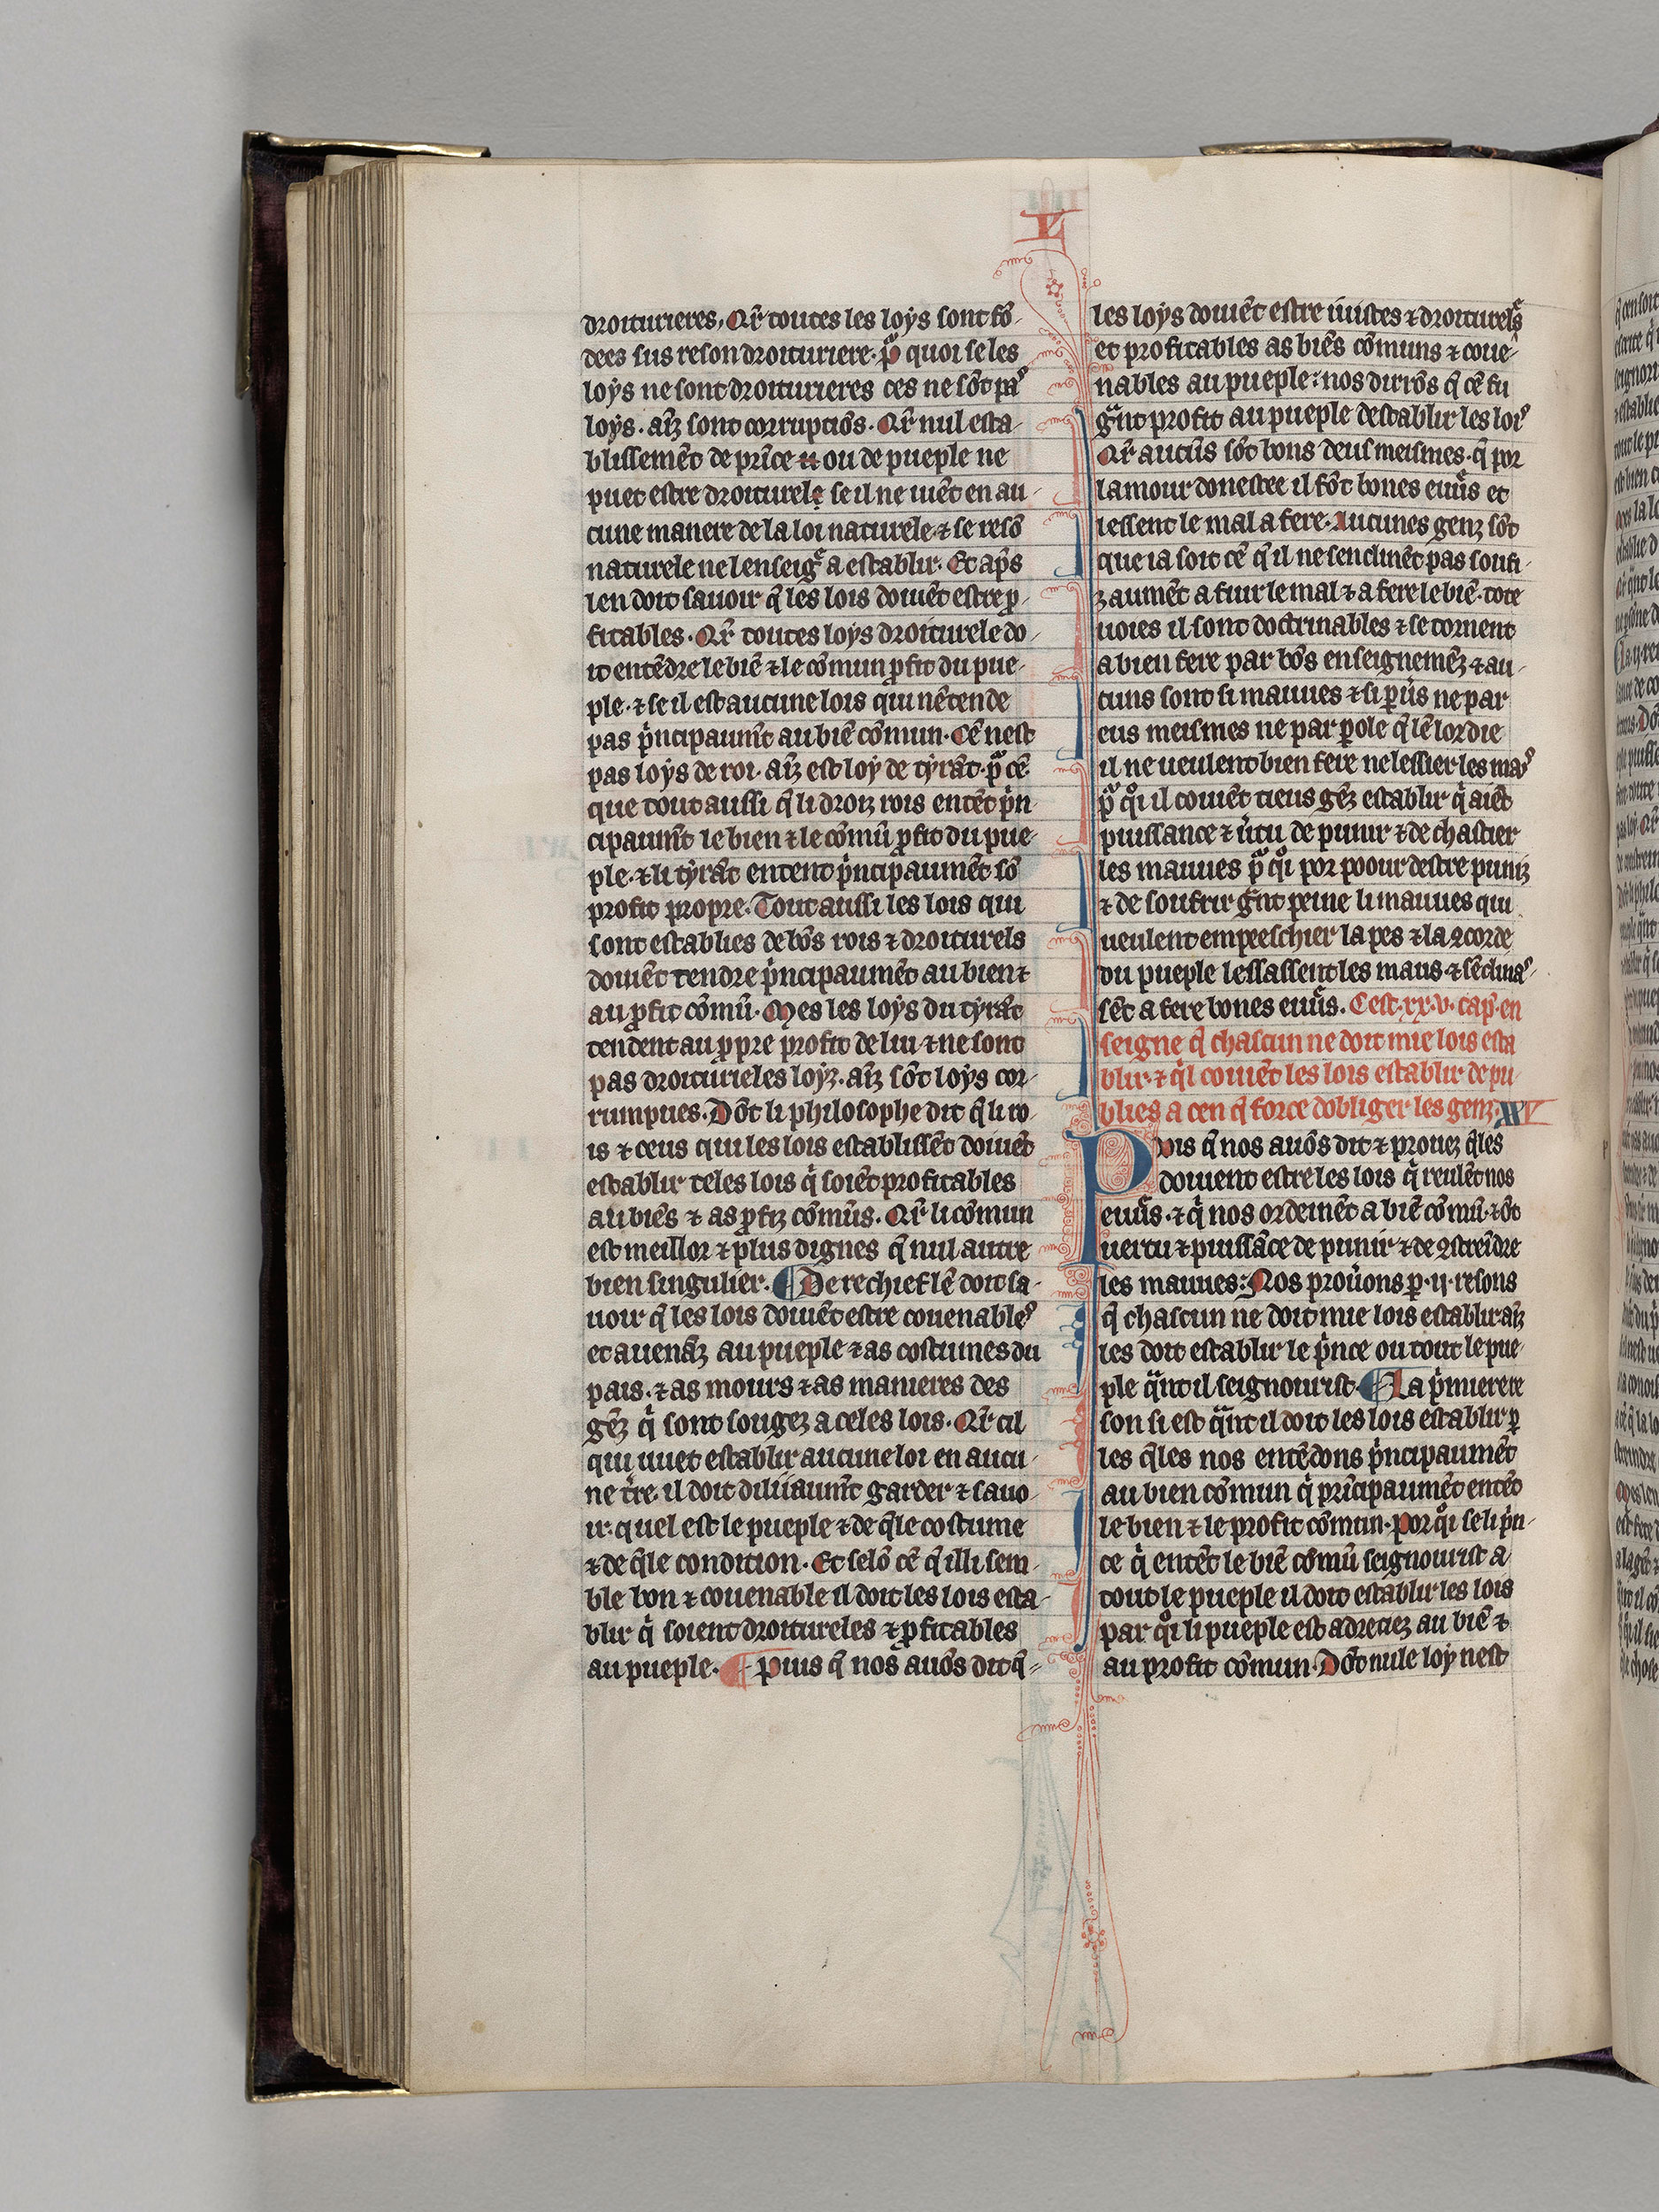 L
droiturieres, Qr̄ toutes les loys sont fō-
dees sus reson droituriere. pͣ quoi se les
loys ne sont droiturieres ces ne sōt paˢ
loys. aīz sont corruptiōs. Qr̄ nul esta-
blissemēt de prīce ou de pueple ne
puet estre droiturele se il ne uiēt en au-
cune manere de la loi naturele ⁊ se resō
naturele ne lenseigͤ a establir. Et ap̄s
len doit sauoir q̄ les lois doiuēt estre ꝓ-
fitables. Qr̄ toutes loys droiturele do-
it entēdre le biē ⁊ le cōmun ꝓfit du pue-
ple. ⁊ se il est aucune lois qui nētende
pas pͥncipaum̄t au biē cōmun. Cē nest
pas loys de roi. aīz est loy de tyrāt. pͣ cē
que tout aussi q̄ li droiz rois entēt pͥn-
cipaum̄t le bien ⁊ le cōmū ꝓfit du pue-
ple. ⁊ li tyrāt entent pͥncipaumēt sō
profit propre. Tout aussi les lois qui
sont establies de bōs rois ⁊ droiturels
doiuēt tendre pͥncipaumēt au bien ⁊
au ꝓfit cōmū. Mes les loys du tyrāt
tendent au ꝓpre profit de lui ⁊ ne sont
pas droiturieles loyz. aīz sōt loys cor-
rumpues. Dōt li philosophe dit q̄ li ro-
is ⁊ ceus qui les lois establissēt doiuēt
establir teles lois qͥ soiēt profitables
au biēs ⁊ as ꝓfiz cōmūs. Qr̄ li cōmun
est meillor ⁊ plus dignes q̄ nul autre
bien singulier. ¶ De rechief lē doit sa-
uoir q̄ les lois doiuēt estre couenableˢ
et auenāz au pueple ⁊ as costumes du
pais. ⁊ as mours ⁊ as manieres des
gēz qͥ sont sougez a celes lois. Qr̄ cil
qui uuet establir aucune loi en aucu-
ne t̄re. il doit diliiaum̄t garder ⁊ sauo-
ir. quel est le pueple ⁊ de q̄le costume
⁊ de q̄le condition. Et selō cē q̄ illi sem-
ble bon ⁊ couenable il doit les lois esta-
blir qͥ soient droitureles ⁊ ꝓfitables
au pueple. ¶ Puis q̄ nos auōs dit q̄
les loys doiuēt estre iuistes ⁊ droiturelˢ
et profitables as biēs cōmuns ⁊ coue-
nables au pueple: nos dirrōs q̄ cē fu
gͣnt profit au pueple destablir les loiˢ
Qr̄ aucūs sōt bons deus meismes. q̄ por
lamour donestee il fōt bones euur̄s et
lessent le mal a fere. Aucunes genz sōt
que ia soit cē q̄ il ne senclinēt pas soufi-
zaumēt a fuir le mal ⁊ a fere le biē. tote
uoies il sont doctrinables ⁊ se tornent
a bien fere par bōs enseignemēz ⁊ au-
cuns sont si mauues ⁊ si ꝑuˢs ne par
eus meismes ne par ꝑole q̄ lē lor die
il ne ueulent bien fere ne lessier les maˢ
pͣ qͦi il couiēt tieus gēz establir qͥ aiēt
puissance ⁊ u̇tu de punir ⁊ de chastier
les mauues pͣ qͦi por poour destre puniz
⁊ de soufrir gͣnt peine li mauues qui
ueulent empeeschier la pes ⁊ la ꝯcorde
du pueple lessassent les maus. ⁊ sēclinaˢ-
sēt a fere bones euur̄s. Cest. xx.v. cap̄. en
seigne q̄ chascun ne doit mie lois esta
blir. ⁊ qͥl couiēt les lois establir de pu
blies a cen q̄ force dobliger les genz. XXV
Puis q̄ nos auōs dit ⁊ prouez q̄les
doiuent estre les lois qͥ reulēt nos
euur̄s. ⁊ qͥ nos ordeinēt a biē cōmū. ⁊ ōt
uertu ⁊ puissāce de punir ⁊ de ꝯstreīdre
les mauues: Nos prouōns ꝑ .ij. resons
q̄ chascun ne doit mie lois establir. aīz
les doit establir le pͥnce ou tout le pue-
ple qͣnt il seignourist. ¶ La pͥmiere re
son si est qͣnt il doit les lois establir ꝑ
les q̄les nos entēdons pͥncipaumēt
au bien cōmun qͥ prīcipaumēt entēt
le bien ⁊ le profit cōmun. Por qͦi se li pͥn-
ce qͥ entēt le biē cōmū seignourist a
tout le pueple il doit establir les lois
par qͦi li pueple est adreciez au biē ⁊
au profit cōmun. Dōt nule loy nest